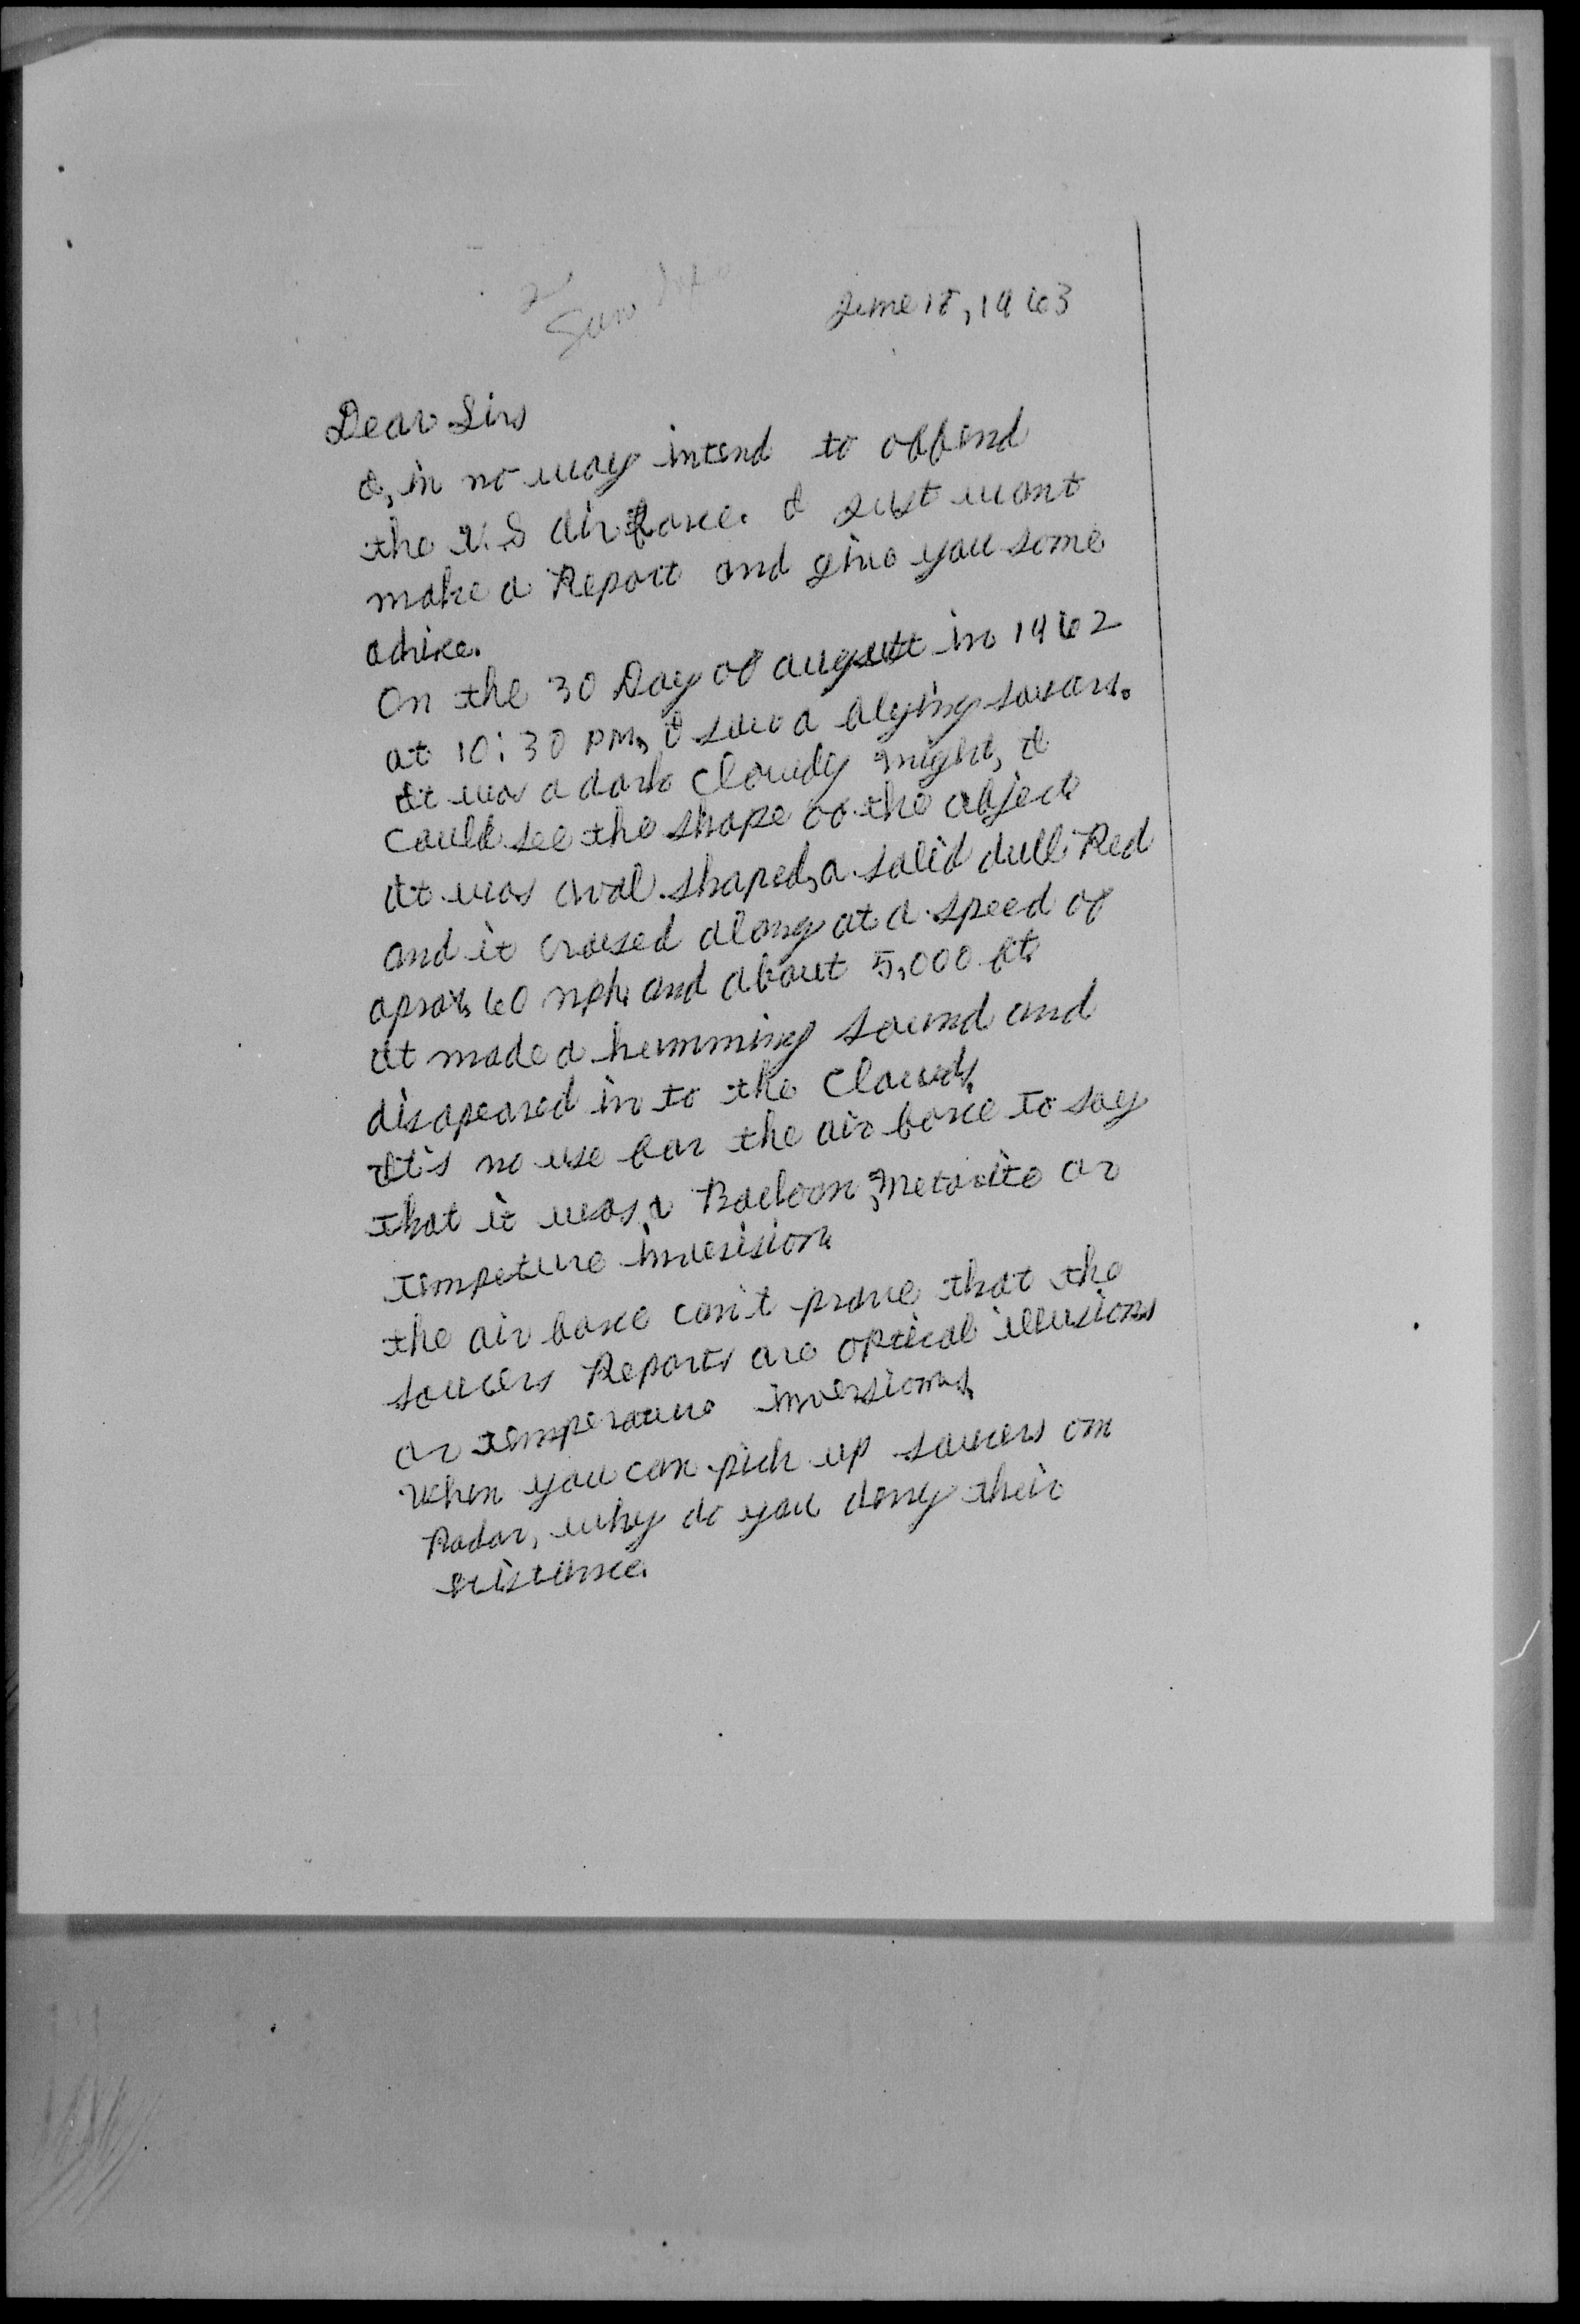 June 18, 1963
Dear Sirs
I, in no way intend to offend
the U.S air force. I just want
make a Report and give you some
advice.
On the 30 Day of august in 1962
at 10:30 PM, I saw a flying
It was a dark cloudy night, I
could see the shape of the object
It was oval shaped, a solid dull Red
and it crused along at a speed of
aprox, 60 mph and about 5,000 ft.
it made a humming sound and
disapeared in to the clouds.
It's no use for the air force to say
that it was a Balloon, metorite or
tempeture
the air force can't prove that the
saucers Reports are optical illusions
or temperature inversions.
When you can pick up saucers on
Radar, why do you deny their
existance.